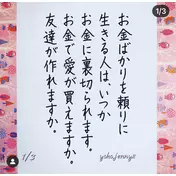 1/3
お金ばかりを頼りに
生きる人は、いつか
お金に裏切られます。
お金で愛が買えますか。
友達が作れますか。
1/3
yokojennys